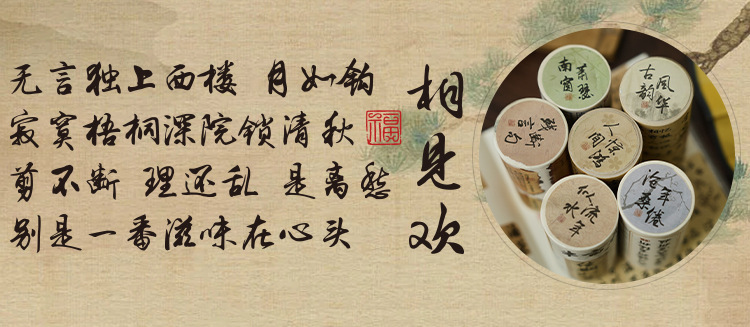 无言独上西楼 月如钩
寂寞梧桐深院锁清秋
剪不斷 理还乱 是离愁
别是一番滋味在心头
相见欢
福
南窗
古韵
风华
人间
惊鸿
似水
流年
沧桑